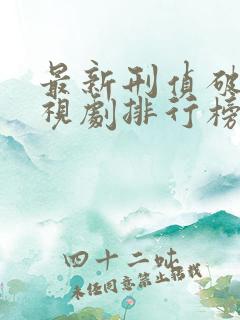 最新刑偵破
視劇排行榜
四十二吠
未经同意禁止转载